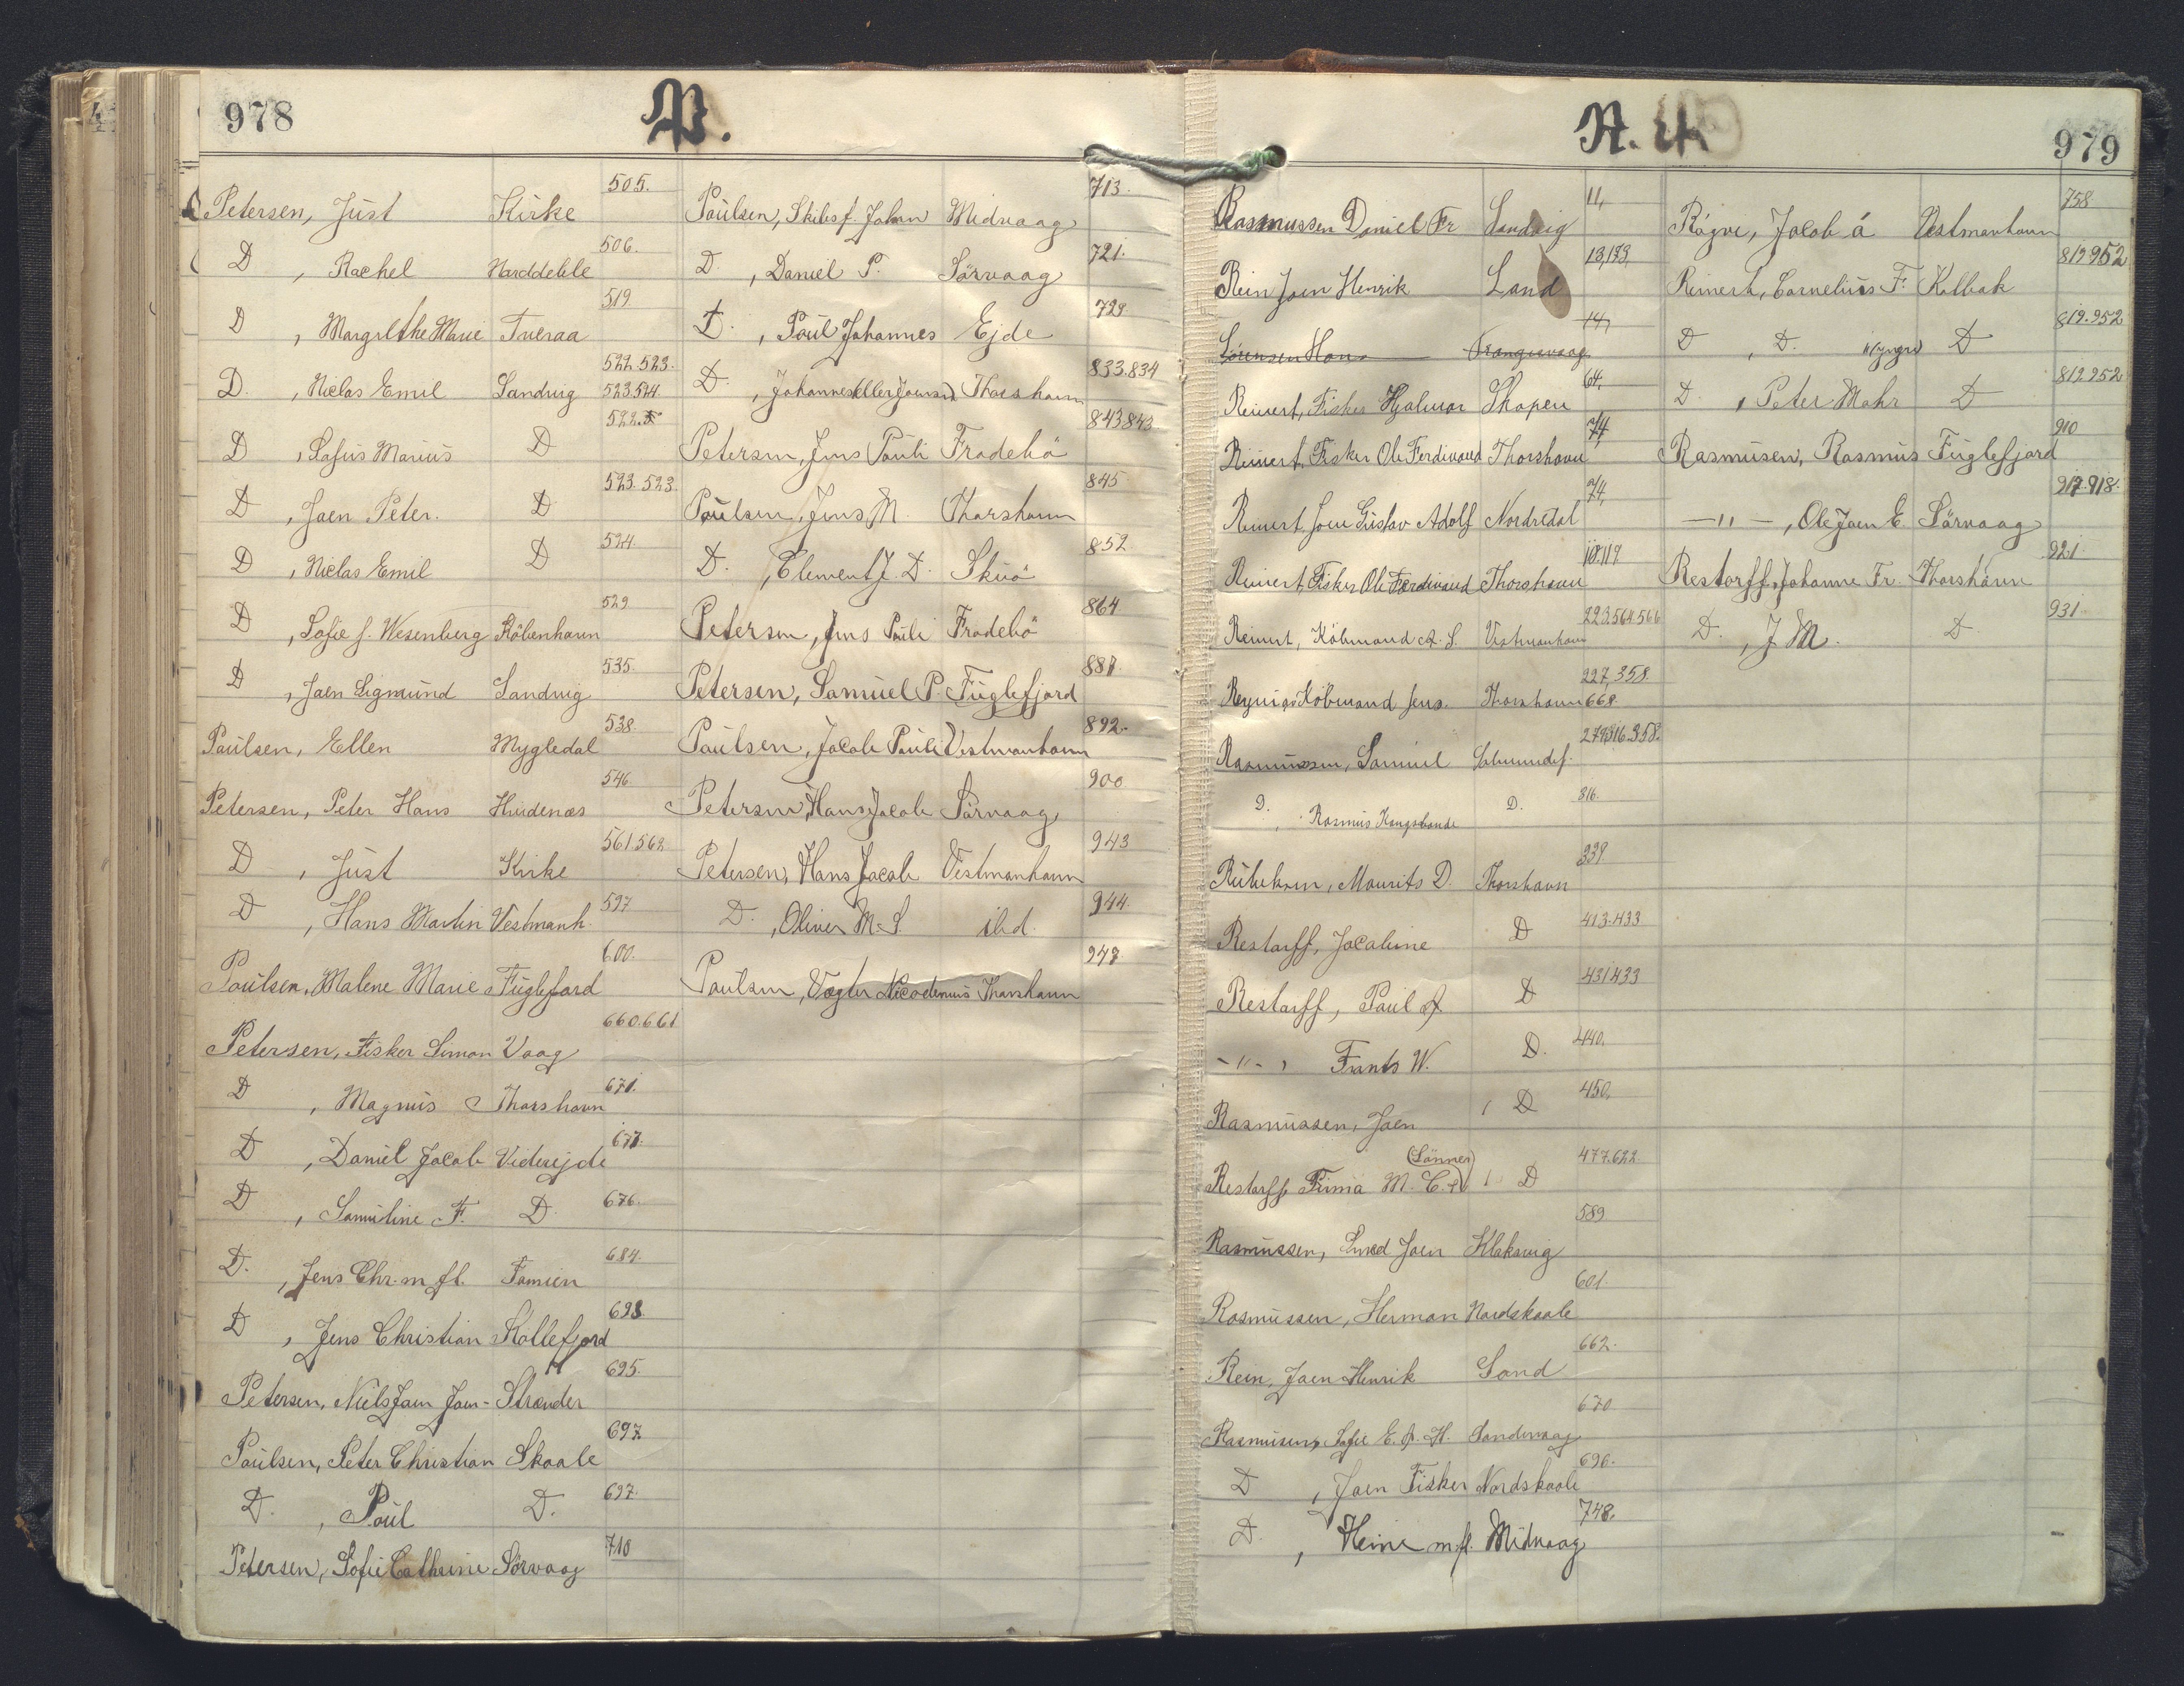 978
P.
Petersen, Just Kirke 505.
D , Rachel Harddeble 506.
D , Margrethe Marie Tveraa 519
D. , Niclas Emil Sandvig 522.523. 523.524.
D , Sofus Marius D 522.
D , Joen Peter. D 523.523.
D , Niclas Emil D 524.
D , Sofie f. Wesenberg Köbenhavn 529
D , Joen Sigmund Sandvig 535.
Paulsen, Ellen Mygledal 538.
Petersen, Peter Hans Husenæs 546
D , Just Kirke 561.562
D , Hans Martin Vestmanh. 597
Poulsen, Malene Marie Fuglefjord 600.
Petersen, Fisker Simon Vaag 660.661
D , Magnus Thorshavn 671.
D , Daniel Jacob Viderejde
D , Samuline F. D. 676.
D. , Jens Chr. m fl. Famien 684.
D , Jens Christian Kollefjord 693.
Petersen, Niels Joen Joen- Strænder 695.
Poulsen, Peter Christian Skaale 697
D. , Poul D. 697.
Petersen, Sofie Cathrine Sörvaag 710
Poulsen, Skibsf. Johan Midvaag 713.
D. , Daniel P. Sörvaag 721.
D. , Poul Johannes Ejde 729
D. , Johannes Thorshavn 833.834
Petersen, Jens Pauli Frodebö 843.843
Poulsen, Jens M. Thorshavn 845
D. , Clement J. D. Skuö 852
Petersen, Jens Pauli Frodebö 864
Petersen, Samuel P. Fuglefjord 887.
Poulsen, Jacob Pauli Vestmanhavn 892.
Petersen, Hans Jacob Sörvaag 900
Petersen, Hans Jacob Vestmanhavn 943
D. , Oliver M. S ibd. 944
Poulsen, Vogter Nicodemus Thorshavn 948
979
R.
Rasmussen Daniel Fr Sandvig 11,
Rein Joen Henrik Sand 13,193,
Sörensen Hans Trangisvaag 14,
Reinert, Fisker Hjalmar Skopen 64,
Reinert, Fisker Ole Ferdinand Thorshavn 74
Reinert, Joen Gustav Adolf Nordredal 74,
Reinert, Fisker Ole Ferdinand Thorshavn 119
Reinert, Köbmand A. S. Vestmanhavn 223.564.566
Reynis Köbmand Jens. Thorshavn 227,358. 668
Rasmussen, Samuel 279.316.358.
D. , Rasmus Kongsbonde D. 316.
Rübekom, Mourits D. Thorshavn 339
Restorff, Jacobine D 413.433
Restorff, Poul A D 431.433
-"- , Frants W. D. 440.
Rasmussen, Joen D 450.
Restorff Firma M. C. & (Sönner) D 477.622.
Rasmussen, Smed Joen Klaksvig 589
Rasmussen, Herman Nordskaale 601.
Rein, Joen Henrik Sand 662.
Rasmussen, Sofie E. J. H. Sandevaag 670
D , Joen Fisker Nordskaale 696.
D. , Heine m.fl. Midvaag 748.
Rógvi, Jacob á Vestmanhavn 758
Reinert, Cornelius F. Kolbak 819 952
D , D. (yngre) D 819.952
D. , Peter Mohr D 819.952
Rasmusen, Rasmus Fuglefjord 910
-"- , Ole Joen E. Sörvaag 917.918.
Restorff, Johanne Fr. Thorshavn 921.
D. , J M. D 931.